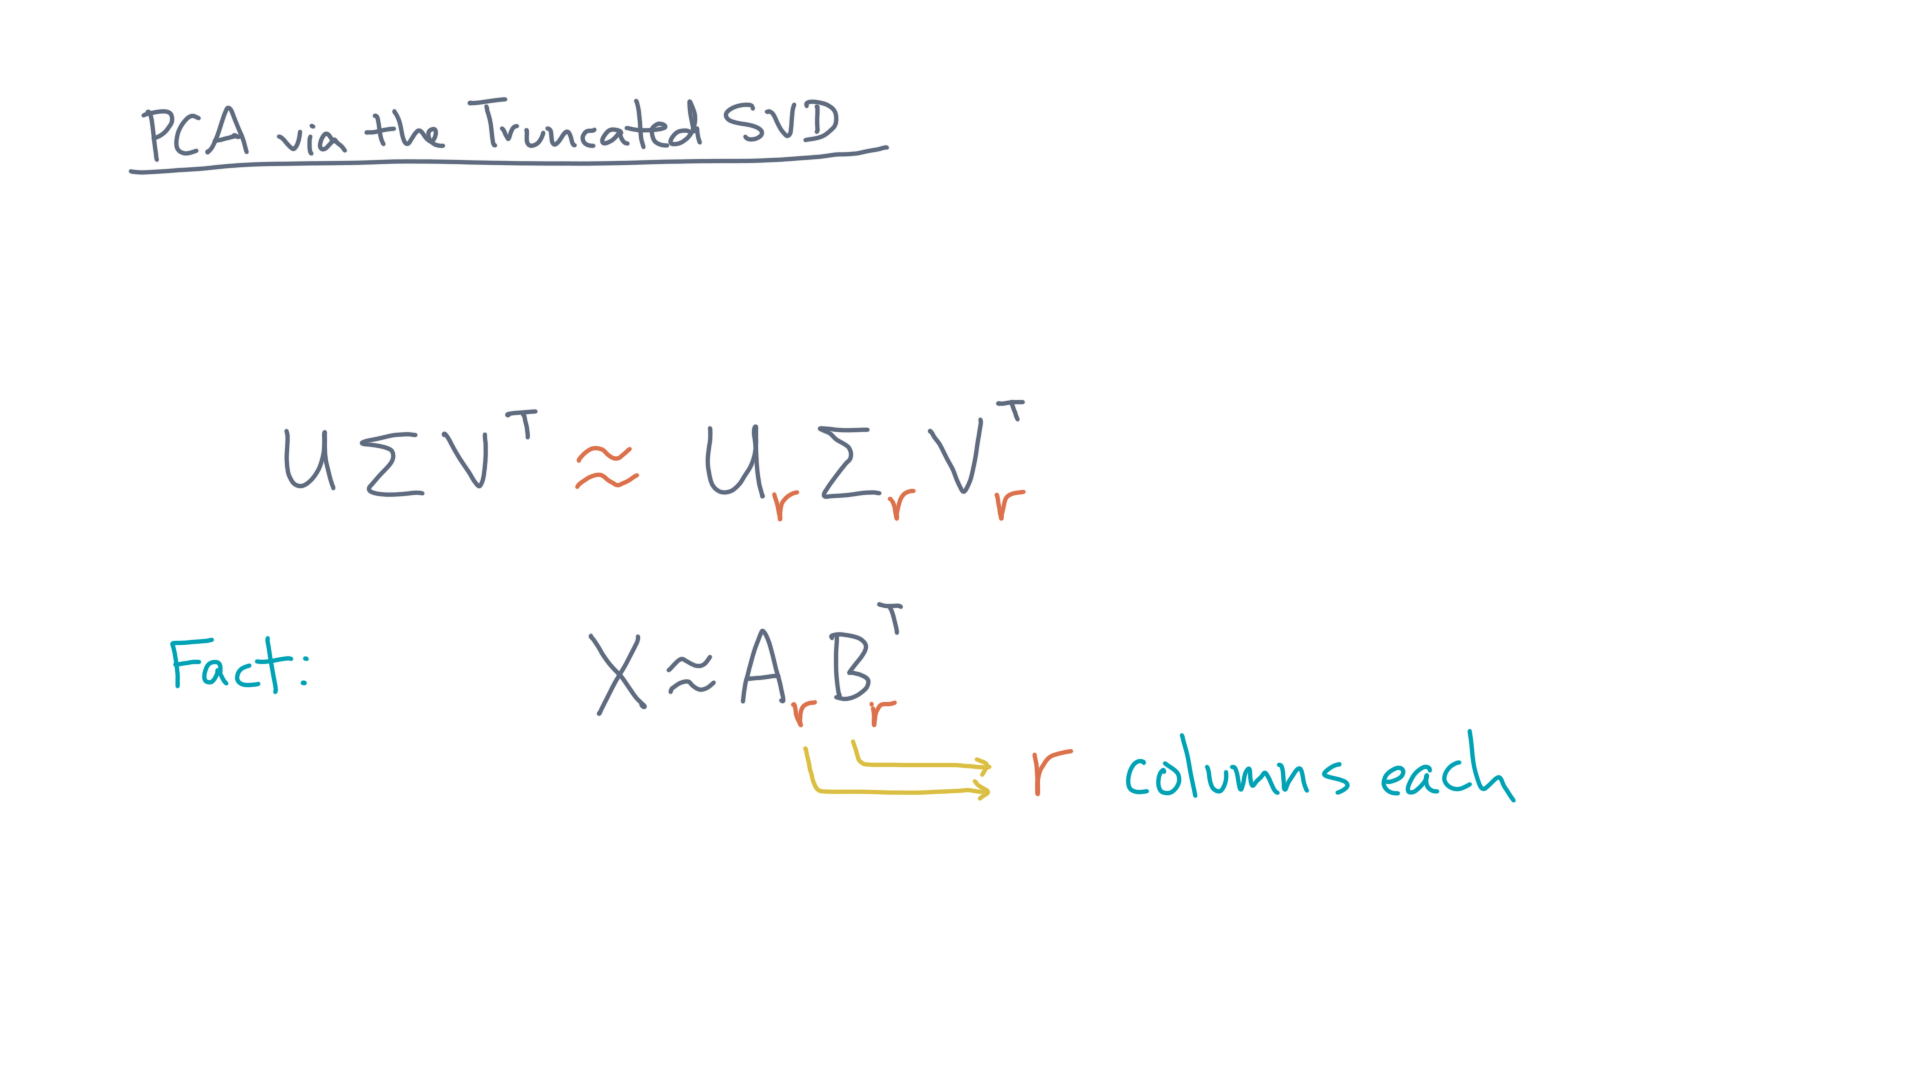 PCA via the Truncated SVD
UΣVᵀ ≈ UᵣΣᵣVᵣᵀ
Fact: X ≈ AᵣBᵣᵀ
r columns each